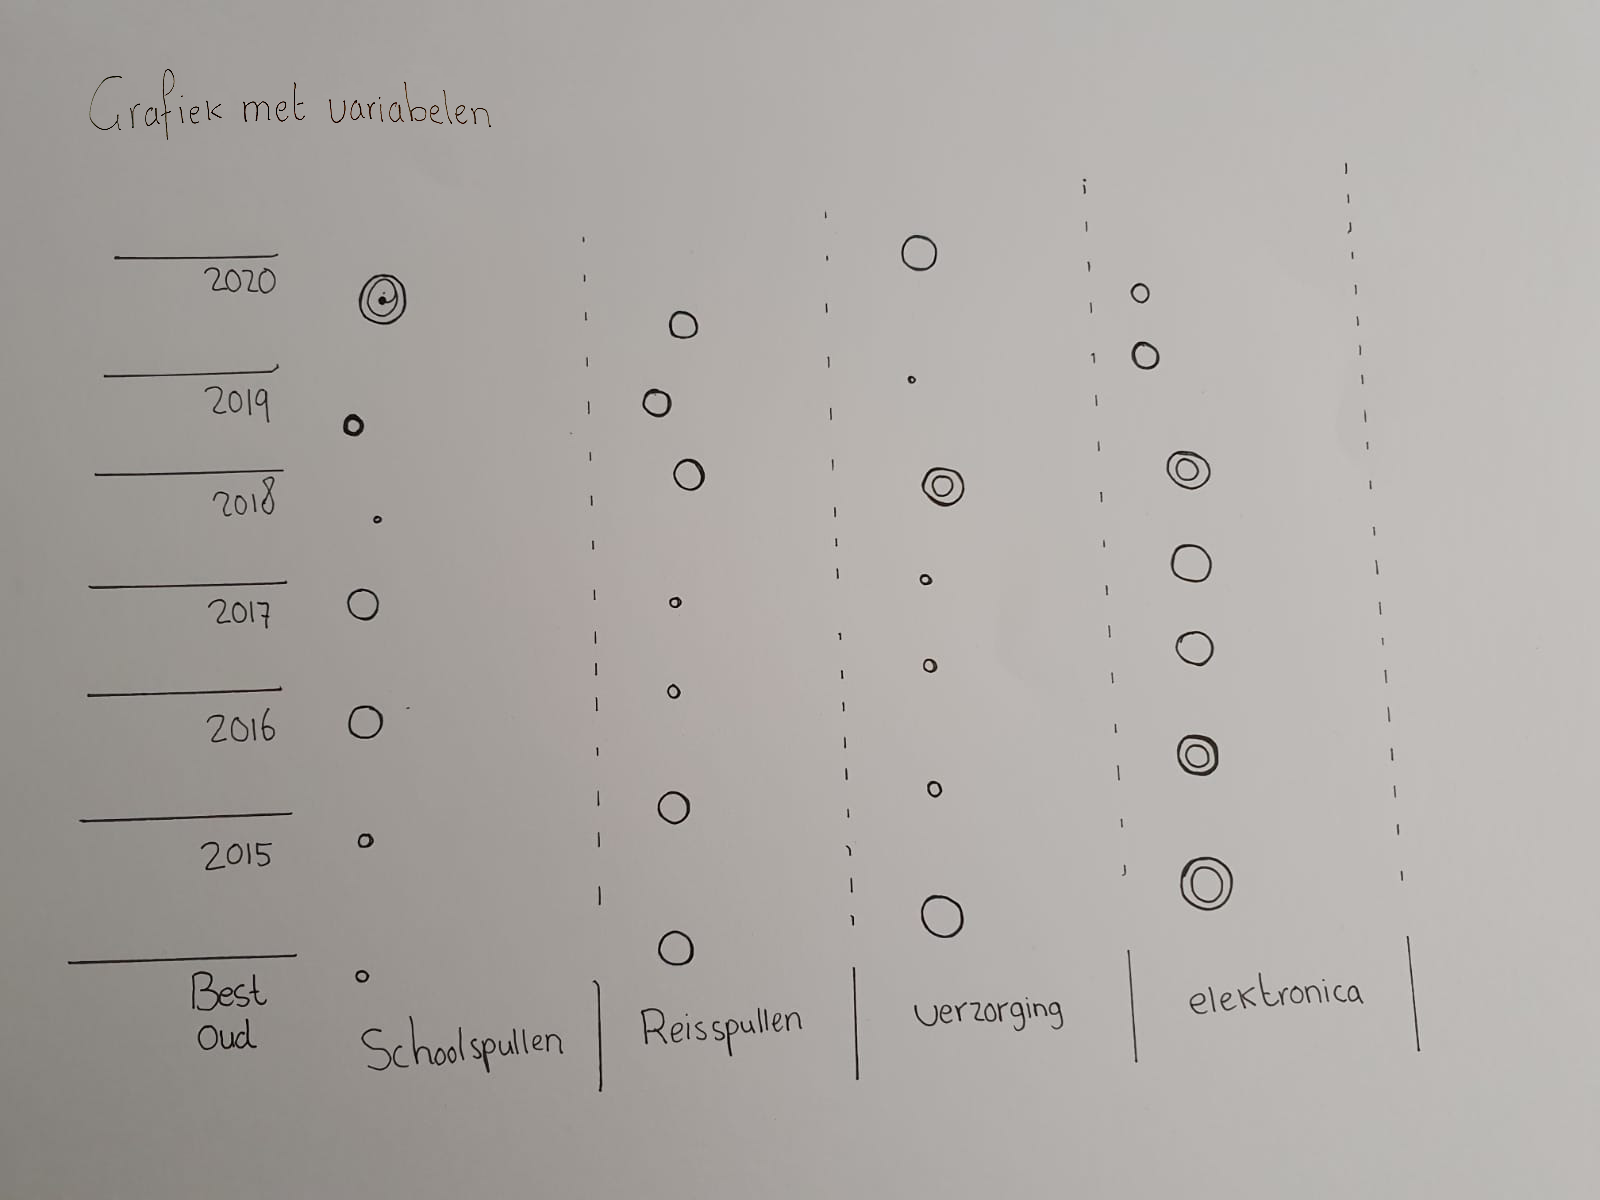 Grafiek met variabelen
2020
2019
2018
2017
2016
2015
Best
Oud
Schoolspullen
Reisspullen
verzorging
elektronica